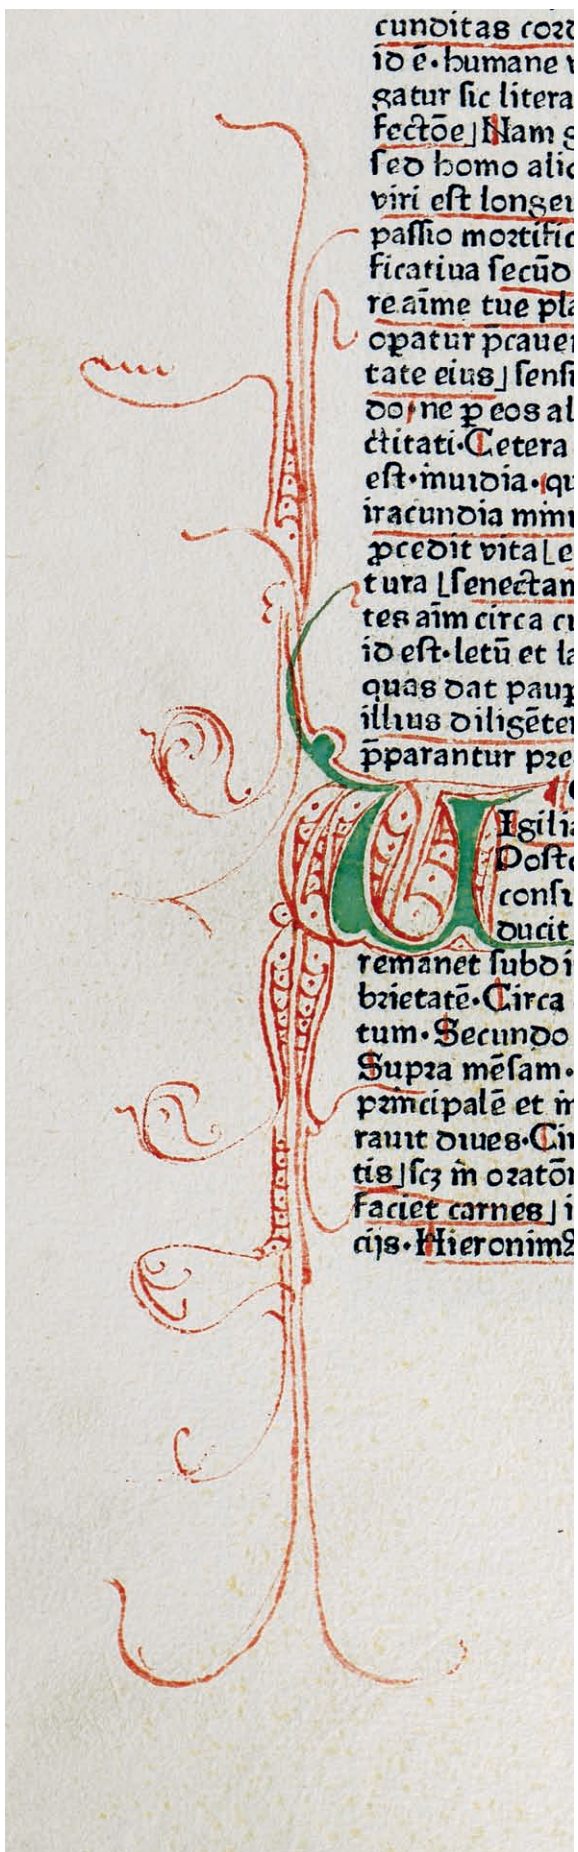 cunditas cord
id ē·humane v
gatur sic litera
fectōe⌋Nam g
sed homo alic
viri est longeu
passio mortific
ficatiua secūd
re aīme tue pla
oꝑatur p̄cauer
tate eius⌋ sensu
do·ne ꝑ eos al
ctitati·Cetera
est·inuidia·qu
iracundia minu
ꝓcedit vita⌊e
tura ⌊senectam
tes aīm circa cu
id est·letū et la
quas dat pauꝑ
illius diligēter
p̄parantur pre
UIgilia
Posto
consu
ducit
remanet subdi
brietatē·Circa
tum·Secundo
Supra mēsam·
principalē et in
rauit diues·Cir
tis⌋scꝫ in oratōi
faciet carnes⌋ i
cijs·Hieronimꝰ